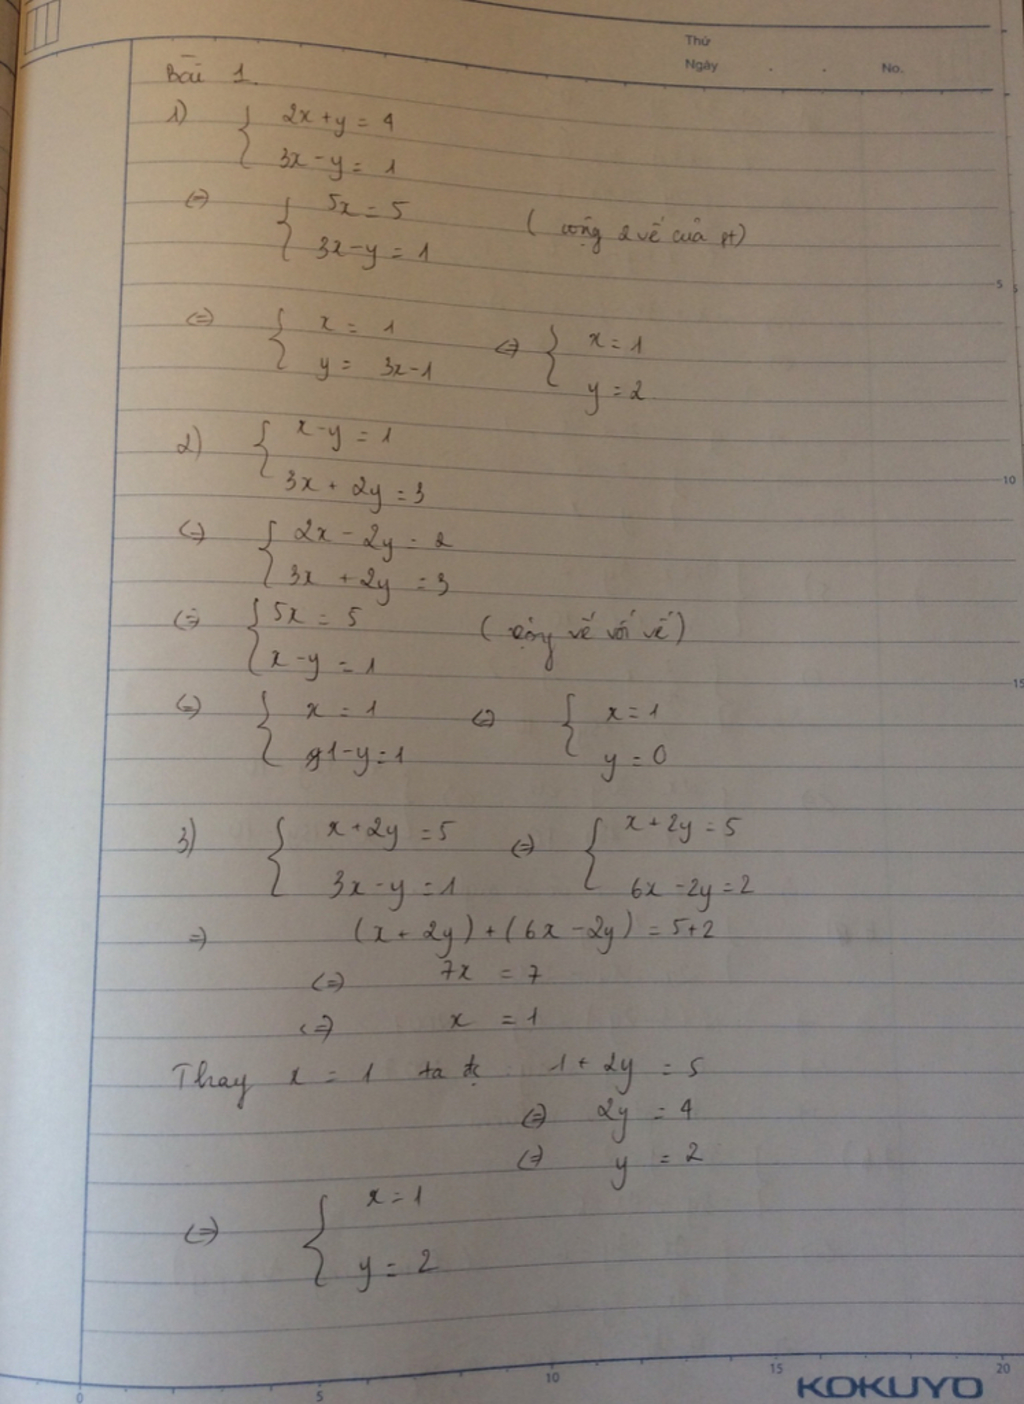 Thứ
Ngày . . No.
Bài 1.
1) { 2x + y = 4
3x - y = 1
(=) { 5x = 5 ( cộng 2 vế của pt)
3x - y = 1
(=) { x = 1 (=) { x = 1
y = 3x - 1 y = 2
2) { x - y = 1
3x + 2y = 3
(=) { 2x - 2y = 2
3x + 2y = 3
(=) { 5x = 5 ( cộng vế với vế )
x - y = 1
(=) { x = 1 (=) { x = 1
1 - y = 1 y = 0
3) { x + 2y = 5 (=) { x + 2y = 5
3x - y = 1 6x - 2y = 2
=) (x + 2y) + (6x - 2y) = 5 + 2
(=) 7x = 7
(=) x = 1
Thay x = 1 ta đc 1 + 2y = 5
(=) 2y = 4
(=) y = 2
(=) { x = 1
y = 2
5
10
15
0 5 10 15 20
KOKUYO